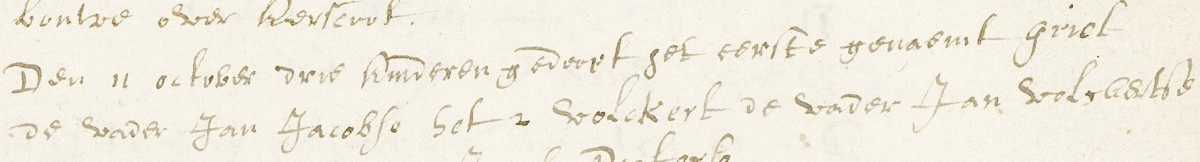 boulve over Kerscrot.
Den 11 october drie kinderen gedoopt het eerste genaemt griet
de vader Jan Jacobse het 2 Volckert de vader Jan volchertse